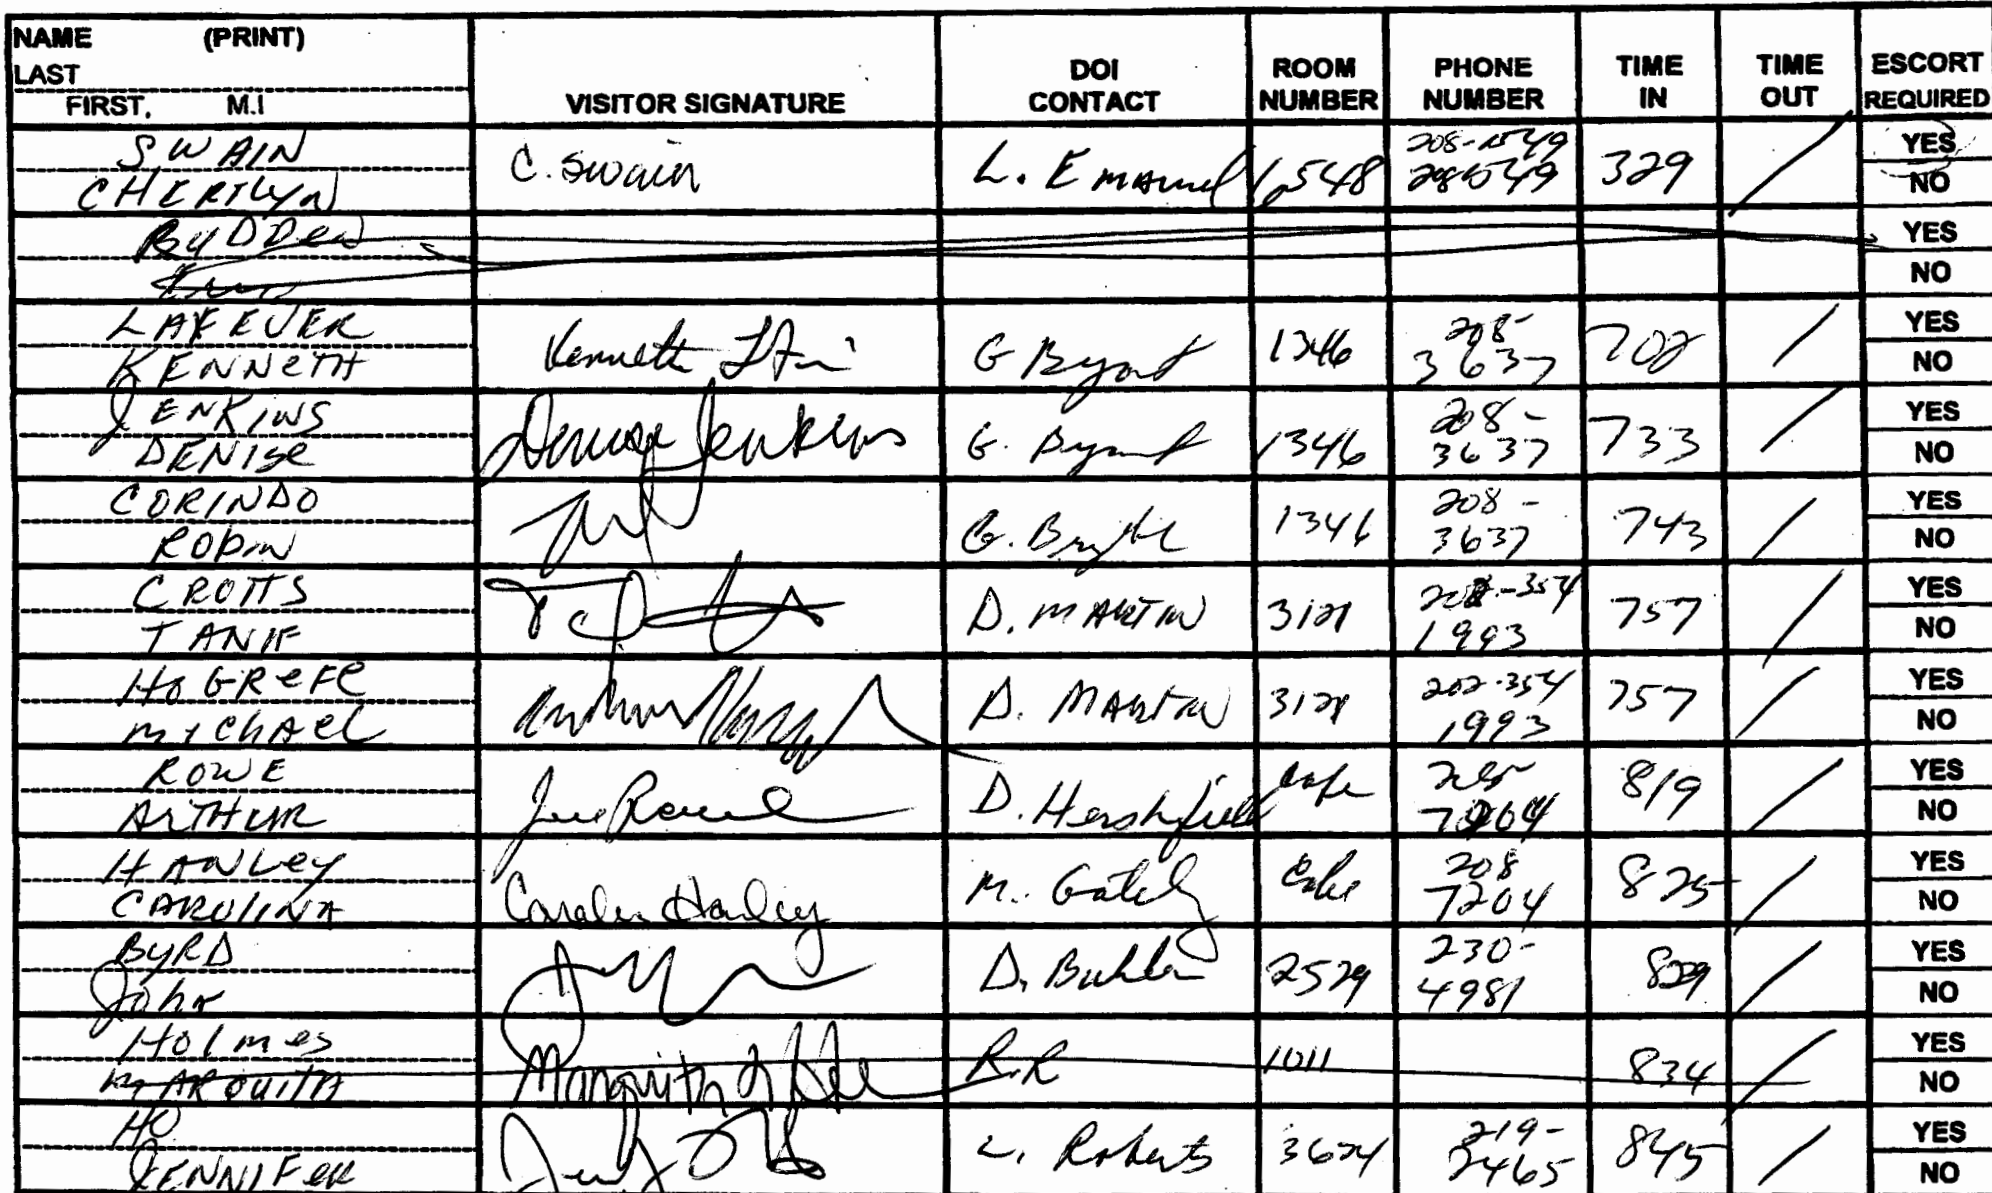 NAME (PRINT)
LAST
FIRST, M.I
VISITOR SIGNATURE
DOI CONTACT
ROOM NUMBER
PHONE NUMBER
TIME IN
TIME OUT
ESCORT REQUIRED
SWAIN
CHERILYN
C. Swain
L. Emanuel
1548
208-1549
329
YES
NO
BUDDEN
YES
NO
LAFEVER
KENNETH
Kenneth
G Bryant
1346
208-
3637
702
YES
NO
JENKINS
DENISE
Denise Jenkins
G. Bryant
1346
208-
3637
733
YES
NO
CORINDO
ROBIN
G.
1346
208-
3637
743
YES
NO
CROTTS
D. MARTIN
202-354
1993
757
YES
NO
HOGREFE
MICHAEL
D. MARTIN
202-354
1993
757
YES
NO
ROWE
ARTHUR
D. Hershfield
819
YES
NO
HANLEY
CAROLINA
Hanley
M. Gately
208
7204
825
YES
NO
BYRD
John
D.
2529
230-
4981
829
YES
NO
Holmes
MARQUITA
R.R
1011
834
YES
NO
HO
JENNIFER
L. Roberts
219-
845
YES
NO